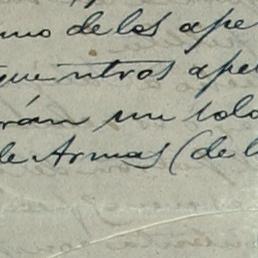 uno de los ape
que otros ape
rán un solo
de Armas (de l